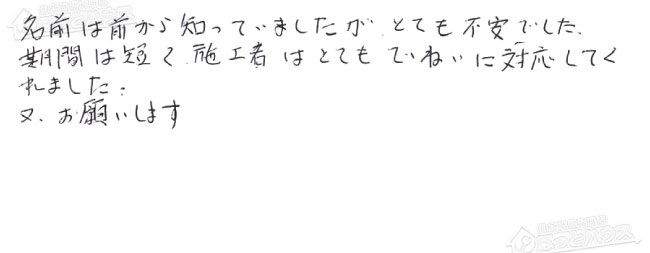 名前は前から知っていましたが、とても不安でした.
期間は短く、施工者はとてもていねいに対応してく
れました.
又、お願いします